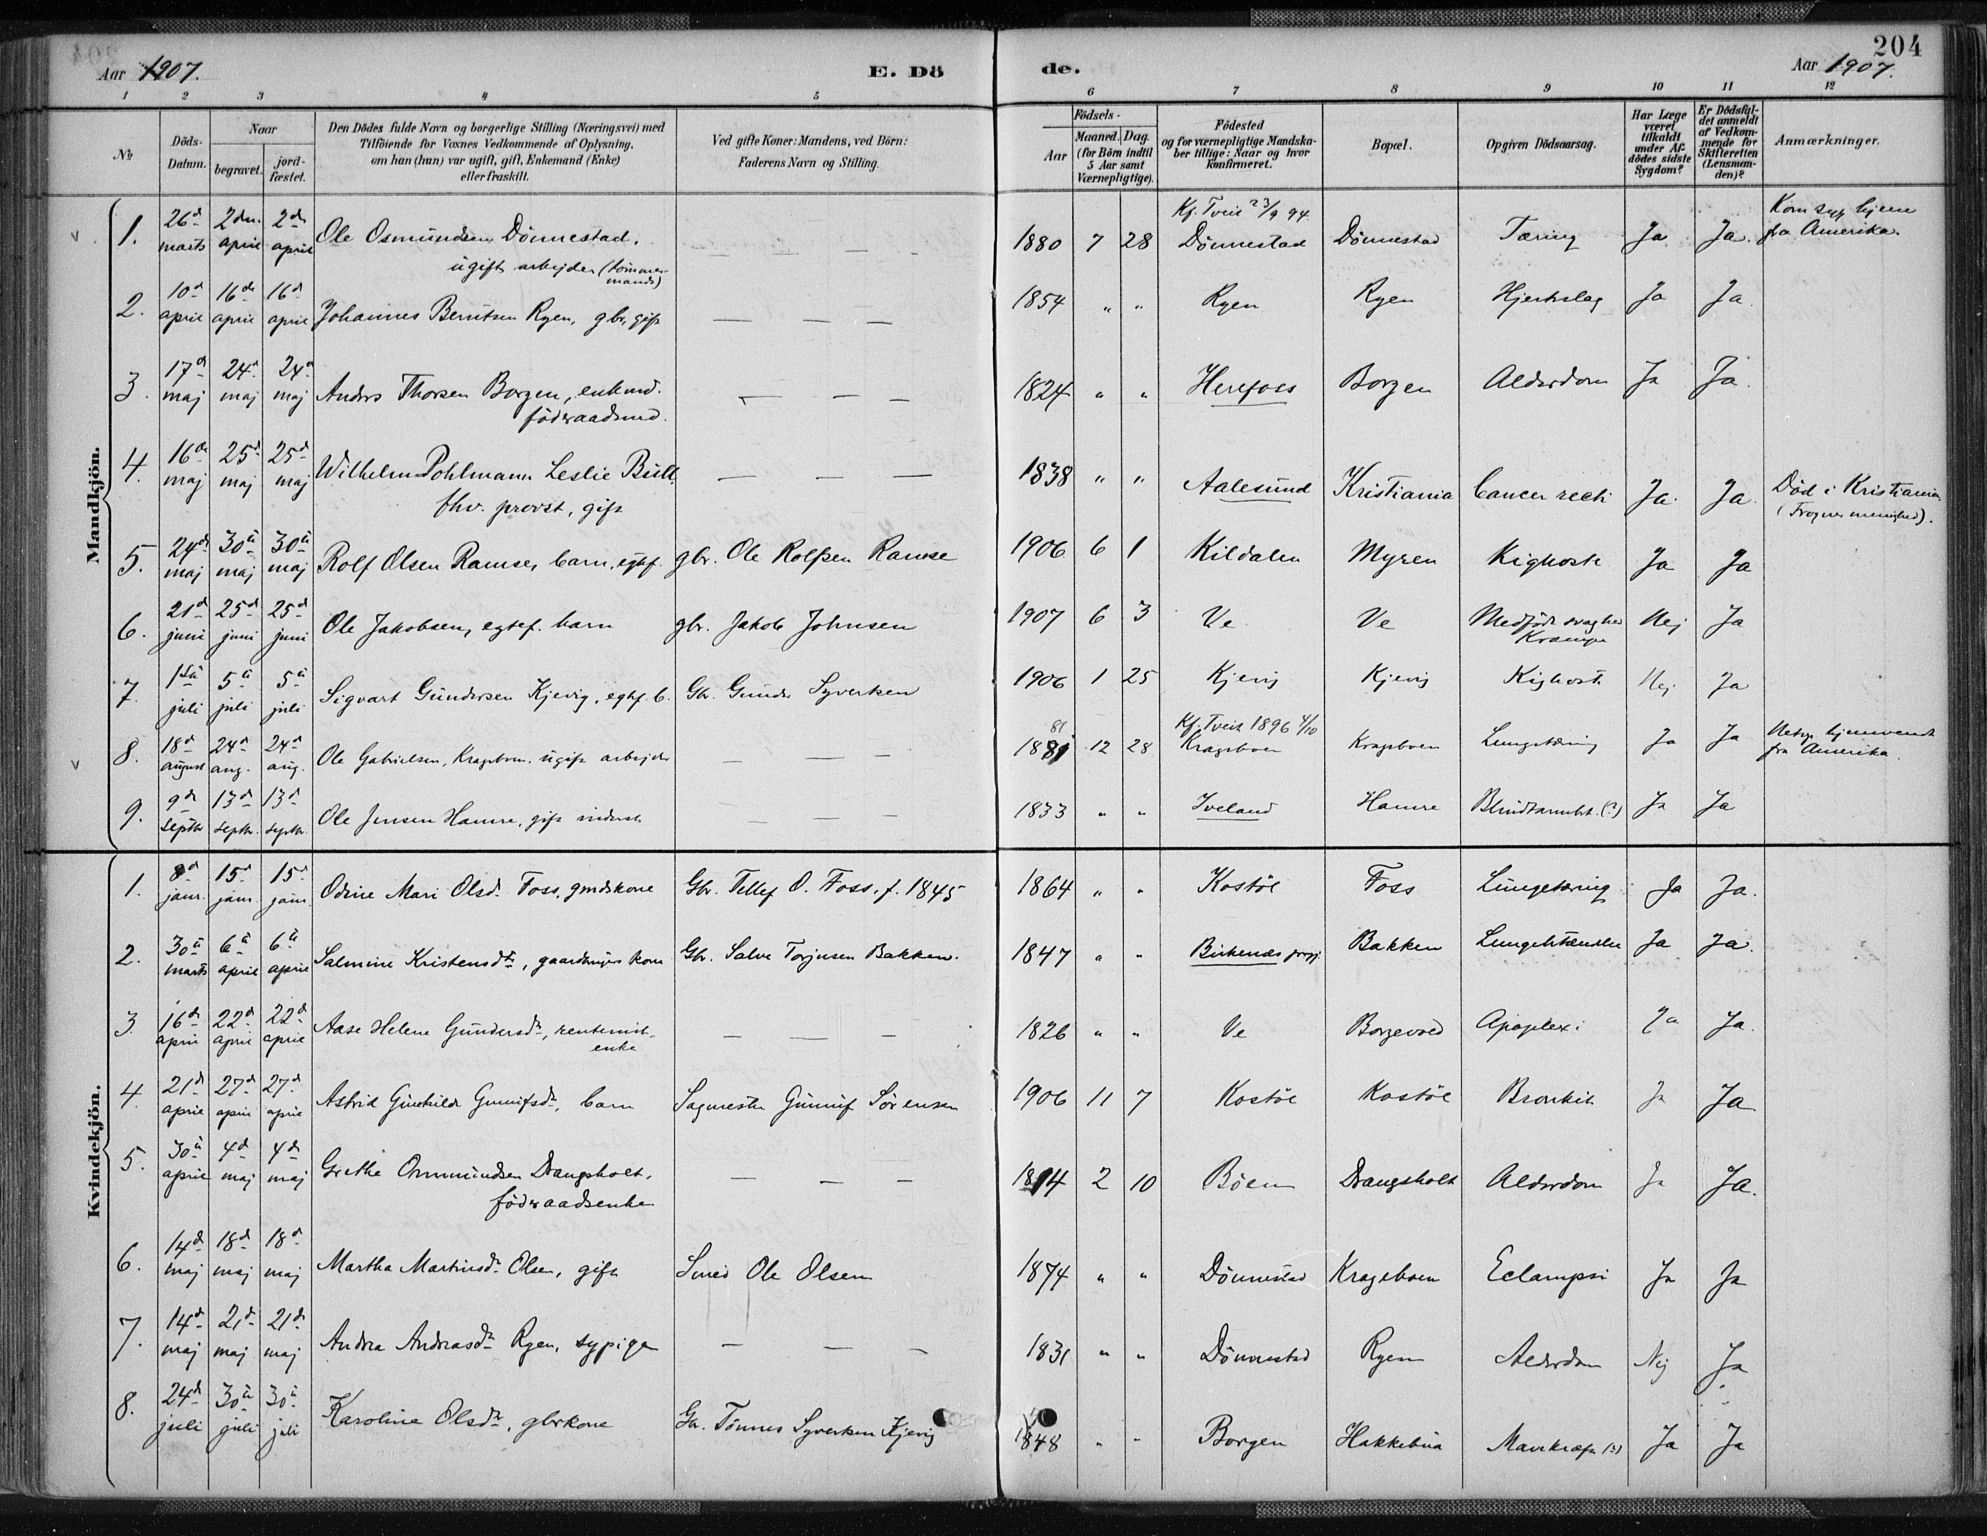 204
Aar 1907.
E. Dö
de.
Aar 1907.
1 2 3 4 5 6 7 8 9 10 11 12
№
Döds-Datum.
Naar
begravet.
jord-fæstet.
Den Dödes fulde Navn og borgerlige Stilling (Næringsvei) med
Tilföiende for Voxnes Vedkommende af Oplysning,
om han (hun) var ugift, gift, Enkemand (Enke)
eller fraskilt.
Ved gifte Koner: Mandens, ved Börn:
Faderens Navn og Stilling.
Födsels-
Aar
Maaned.
Dag.
(for Börn indtil
5 Aar samt
Værnepligtige).
Födested
og for værnepligtige Mandska-
ber tillige: Naar og hvor
konfirmeret.
Bopæl.
Opgiven Dödsaarsag.
Har Læge
været
tilkaldt
under Af-
dödes sidste
Sygdom?
Er Dödsfal-
det anmeldt
af Vedkom-
mende for
Skifteretten
(Lensman-
den)?
Anmærkninger.
Mandkjön.
1. 26d marts 2den april 2d april Ole Osmundsen Dönnestad, ugift arbejder (tömmermands) — — — 1880 7 28 Kf. Tveit 23/9 94 Dönnestad Dönnestad Tæring Ja Ja. Kom syg hjem fra Amerika.
2. 10d april 16de april 16d april Johannes Berntsen Ryen, gbr, gift — — — 1854 " " Ryen Ryen Hjerteslag Ja Ja
3. 17d maj 24d maj 24d maj Anders Thorsen Borgen, enkmd. föderaadsmd. — — — 1824 " " Herefoss Borgen Alderdom Ja Ja.
4. 16de maj 25d maj 25d maj Wilhelm Pohlmann Leslie Bull, fhv. provst, gift — — — 1838 " " Aalesund Kristiania Cancer recti Ja. Ja. Död i Kristiania (Frogner menighed).
5. 24de maj 30te maj 30te maj Rolf Olsen Ramse, barn, egtef. gbr. Ole Rolfsen Ramse 1906 6 1 Kildalen Myren Kighoste Ja Ja
6. 21d juni 25d juni 25d juni Ole Jakobsen, egtef. barn gbr. Jakob Johnsen 1907 6 3 Ve Ve Medfödt svaghed Krampe Nej Ja
7. 1ste juli 5te juli 5te juli Sigvart Gundersen Kjevig, egtf. b. Gbr. Gunder Syvertsen 1906 1 25 Kjevig Kjevig Kighoste Nej Ja
8. 18d august 24d aug. 24d aug. Ole Gabrielsen, Krageboen. ugift arbejder — — — 1881 81 12 28 Kf. Tveit 1896 4/10 Krageboen Krageboen Lungetæring Ja Ja Netop hjemvendt fra Amerika.
9. 9de septbr 13d septbr. 13d septbr. Ole Jensen Hamre, gift inderst — — — 1833 " " Iveland Hamre Blindtarmbet. (?) Ja Ja
Kvindekjön.
1. 8d janr. 15d janr. 15d janr. Odine Mari Olsdr. Foss, gmdskone Gbr. Tellef O. Foss, f. 1845 1864 " " Kostöl Foss Lungetæring Ja Ja.
2. 30te marts 6te april 6te april Salmine Kristensdtr, gaardbrugers kone Gbr. Salve Torjusen Bakken. 1847 " " Birkenæs prgj Bakken Lungebetændelse Ja Ja.
3 16de april 22d april 22d april Aase Helene Gundersdtr, rentenist-enke — — — 1826 " " Ve Borgevold Apoplexi Ja Ja.
4. 21d april 27d april 27d april Astrid Gunhilde Gunnufsdtr, barn Sagmester Gunnuf Sörensen 1906 11 7 Kostöl Kostöl Bronkit Ja Ja
5. 30te april 4d maj 4de maj Grethe Ommundsen Drangsholt, föderaadsenke — — — 1814 2 10 Böen Drangsholt Alderdom Ja Ja.
6. 14d maj 18d maj 18d maj Martha Martinsdtr Olsen, gift Smed Ole Olsen 1874 " " Dönnestad Krageboen Eclampsi Ja Ja
7. 14d maj 21d maj 21de maj Andrea Andreasdtr Ryen, sypige — — — 1831 " " Dönnestad Ryen Alderdom Nej Ja
8. 24de juli 30te juli 30te juli Karoline Olsdtr, gbrkone Gbr. Tönnes Syvertsen Kjevig 1848 " " Borgen Hakkebua Mavekræft (?) Ja Ja